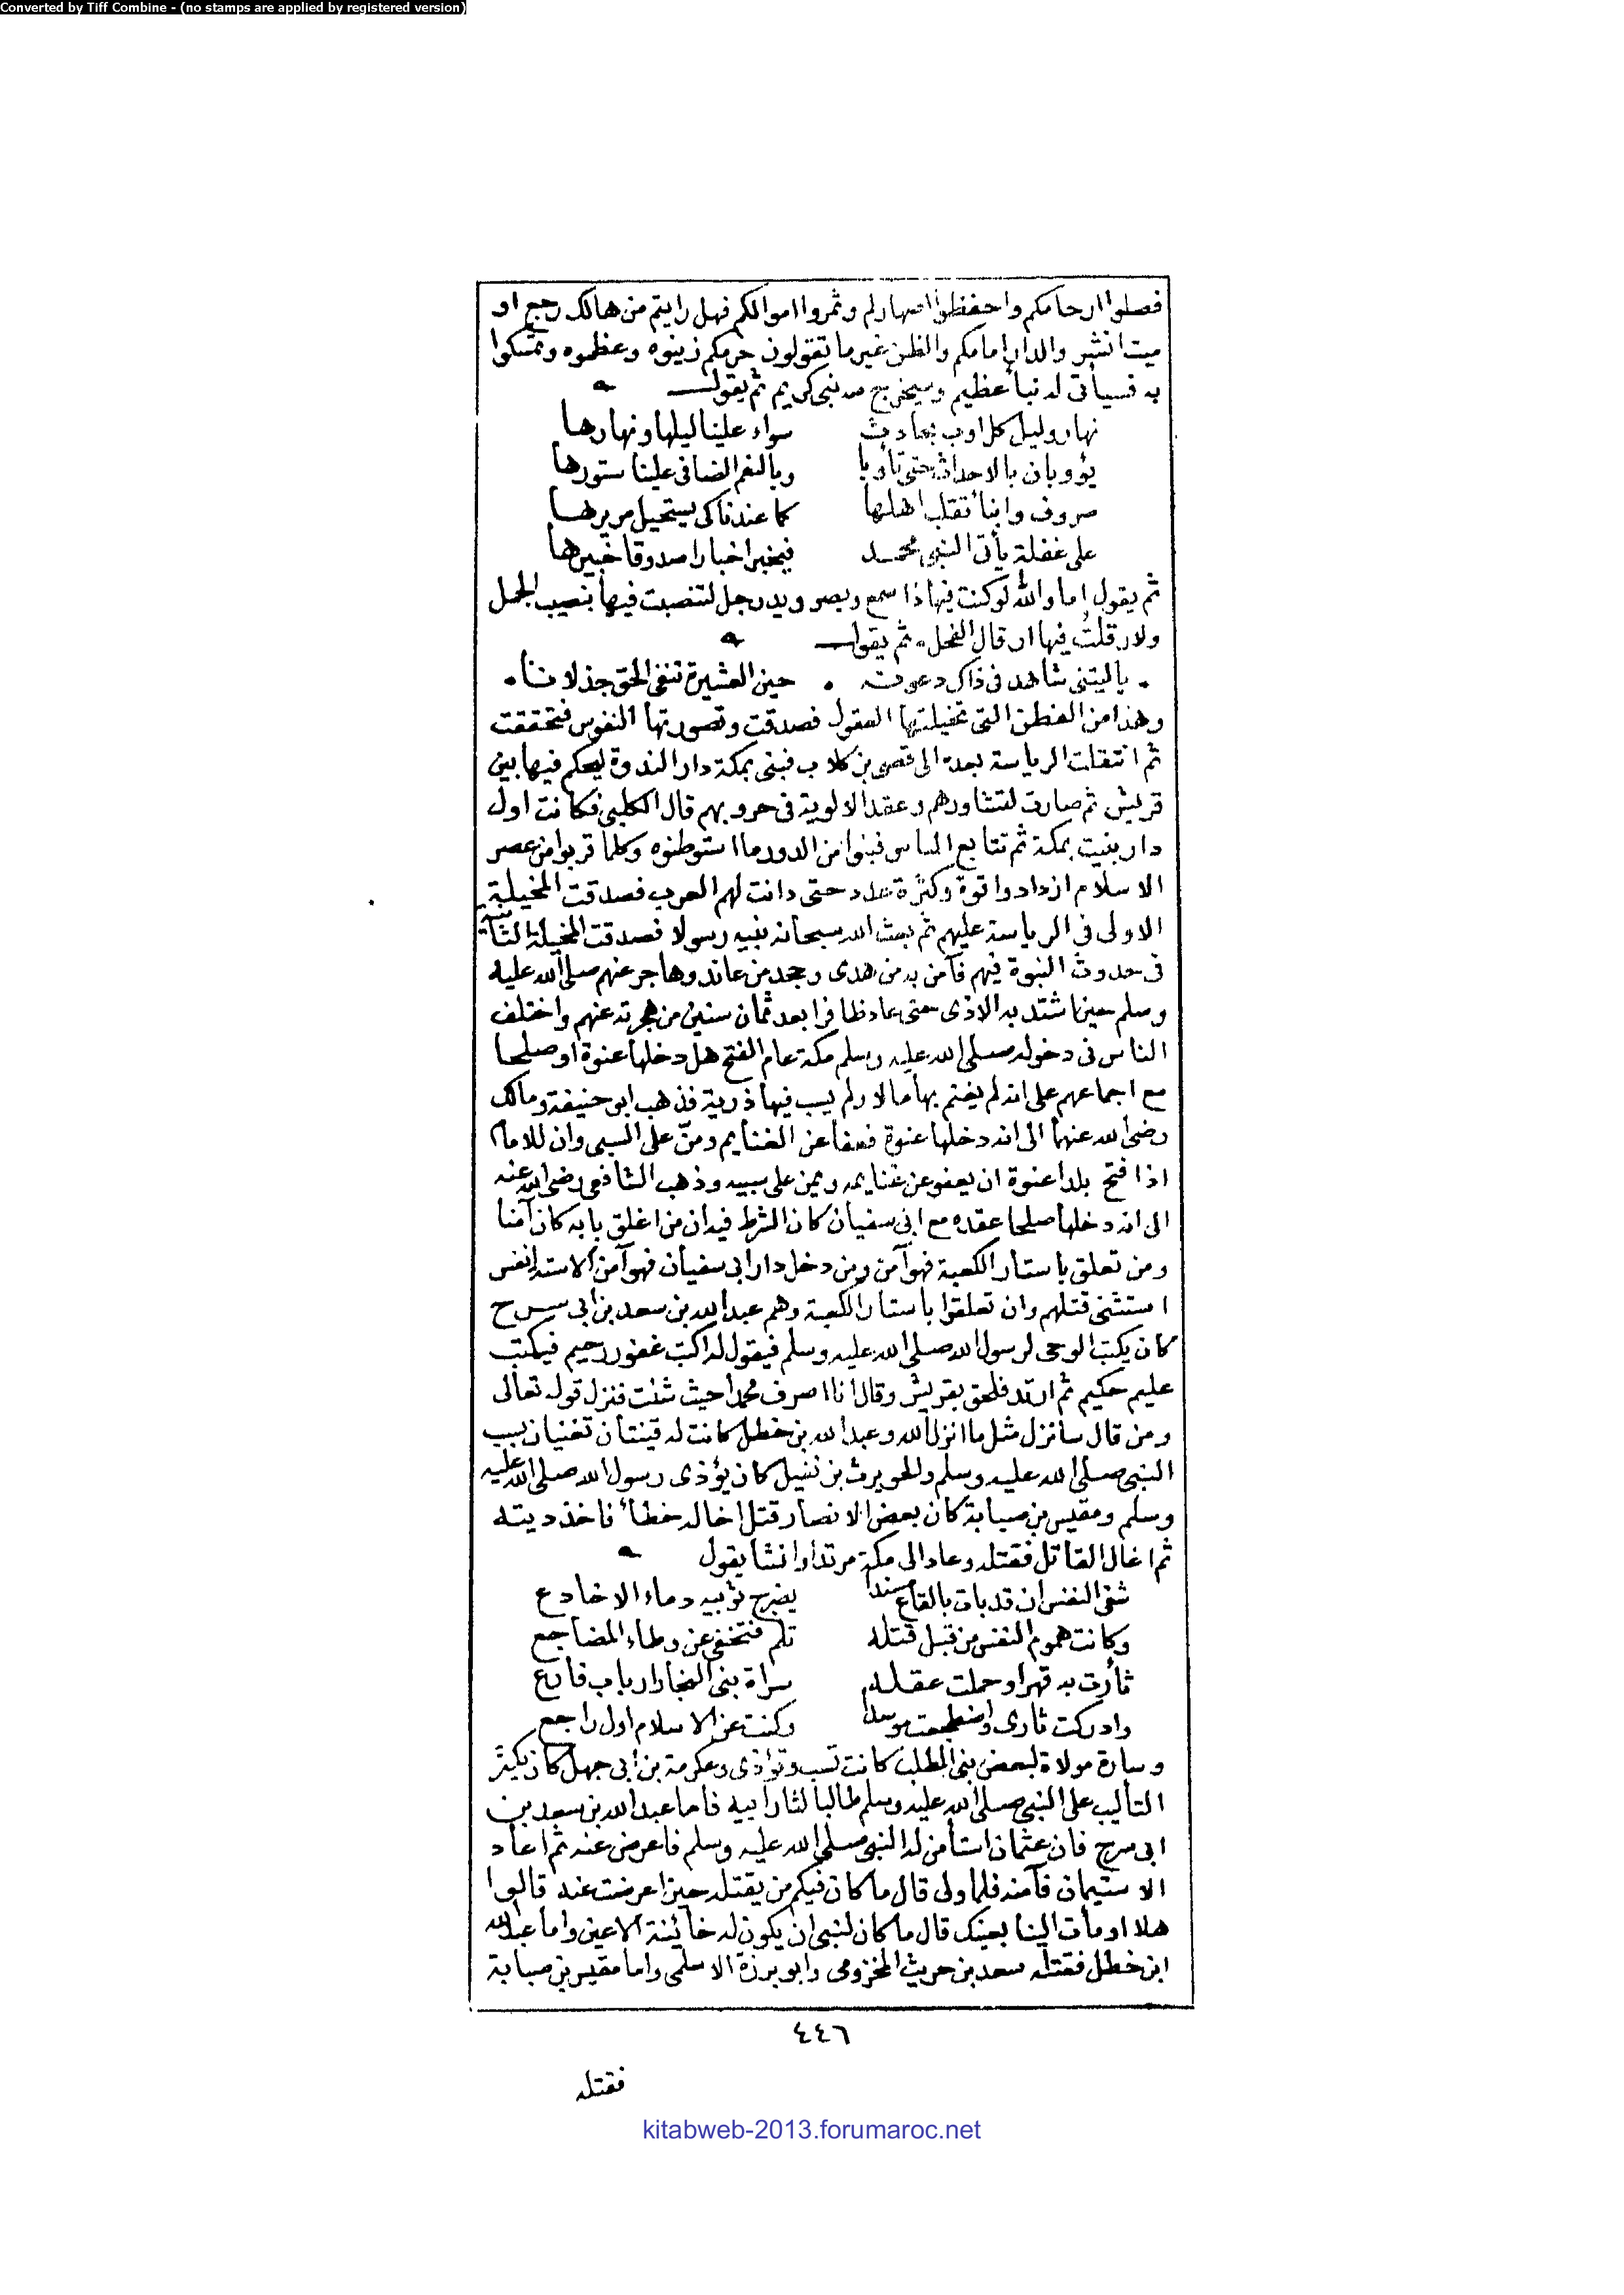 Converted by Tiff Combine - (no stamps are applied by registered version)
فصلوا ارحامكم واحفظوا اصهاركم وثمروا اموالكم فهل رايتم من هالك رجع او
ميت انشر والدار امامكم والظن غير ما تقولون حرمكم زينوه وعظموه وتمسكوا
به فسيأتى له نبأ عظيم وسيخرج منه نبى كريم ثم يقول
نهار وليل كل اوب بحادث سواء علينا ليلها ونهارها
يؤوبان بالاحداث حتى تأوبا وبالنعم الضافى علينا ستورها
صروف وانبائ تقلب اهلها كما عندنا كى يستحيل مريرها
على غفلة يأتى النبى محمد فيخبر اخبارا صدوقا خبيرها
ثم يقول اما والله لو كنت فيها ذا سمع وبصر ويد رجل لتنصبت فيها بنصيب الجمل
ولارقلت فيها ارقال الفحل ثم يقول
يا ليتنى شاهد فى ذاك دعوت حين العشيرة تنفى الحق جذلانا
وهذا من الفطن التى تخيلتها العقول فصدقت وتصورتها النفوس فتحققت
ثم انتقلت الرياسة بعده الى قصى بن كلاب فبنى بمكة دار الندوة ليحكم فيها بين
قريش ثم صارت لتشاورهم وعقد الالوية فى حروبهم قال الكلبى فكانت اول
دار بنيت بمكة ثم تتابع الناس فبنوا من الدور ما استوطنوه وكلما قربوا من عصر
الاسلام ازدادوا قوة وكثرة عدد حتى دانت لهم العرب فصدقت المخيلة
الاولى فى الرياسة عليهم ثم بعث الله سبحانه نبيه رسولا فصدقت المخيلة الثانية
فى حدوث النبوة فيهم فآمن به من هدى وجحد من عاند وهاجر عنهم صلى الله عليه
وسلم حين اشتد به الاذى حتى عاد ظافرا بعد ثمان سنين من هجرته عنهم واختلف
الناس فى دخوله صلى الله عليه وسلم مكة عام الفتح هل دخلها عنوة او صلحا
مع اجماعهم على انه لم يغنم بها مالا ولم يسب فيها ذرية فذهب ابو حنيفة ومالك
رضى الله عنهما الى انه دخلها عنوة فعفا عن الغنايم ومنّ على السبى وان للامام
اذا فتح بلدا عنوة ان يعفو عن غنايمه ويمن على سبيه وذهب الشافعى رضى الله عنه
الى انه دخلها صلحا عقده مع ابى سفيان كان الشرط فيه ان من اغلق بابه كان آمنا
ومن تعلق باستار الكعبة فهو آمن ومن دخل دار ابى سفيان فهو آمن الا ستة انفس
استثنى قتلهم وان تعلقوا باستار الكعبة وهم عبد الله بن سعد بن ابى سرح
كان يكتب الوحى لرسول الله صلى الله عليه وسلم فيقول له اكتب غفور رحيم فيكتب
عليم حكيم ثم ارتد فلحق بقريش وقال انا اصرف محمدا حيث شئت فنزل قوله تعالى
ومن قال سانزل مثل ما انزل الله وعبد الله بن خطل كانت له قينتان تغنيان بسب
النبى صلى الله عليه وسلم والحويرث بن نفيل كان يؤذى رسول الله صلى الله عليه
وسلم ومقيس بن صبابة كان بعض الانصار قتل اخا له خطأ فاخذ ديته
ثم اغال القاتل فقتله وعاد الى مكة مرتدا وانشا يقول
شفى النفس ان قد بات بالقاع مسندا يضرج ثوبيه دماء الاخادع
وكانت هموم النفس من قبل قتله تلم فتحنفى عن وطاء المضاجع
ثأرت به قهرا وحملت عقله سراة بنى النجار ارباب فارع
وادركت ثارى واضطجعت موسدا وكنت عن الاسلام اول راجع
وسارة مولاة لبعض بنى المطلب كانت تسب وتؤذى وعكرمة بن ابى جهل كان يكثر
التأليب على النبى صلى الله عليه وسلم طالبا لثار ابيه فاما عبد الله بن سعد بن
ابى سرح فان عثمان استأمن له النبى صلى الله عليه وسلم فاعرض عنه ثم اعاد
الاستيمان فآمنه فلما ولى قال ما كان فيكم من يقتله حين اعرضت عنه قالوا
هلا اومأت الينا بعينك قال ما كان لنبى ان يكون له خائنة الاعين واما عبد الله
ابن خطل فقتله سعد بن حريث المخزومى وابو برزة الاسلمى واما مقيس بن صبابة
٤٤٦
فقتله
kitabweb-2013.forumaroc.net